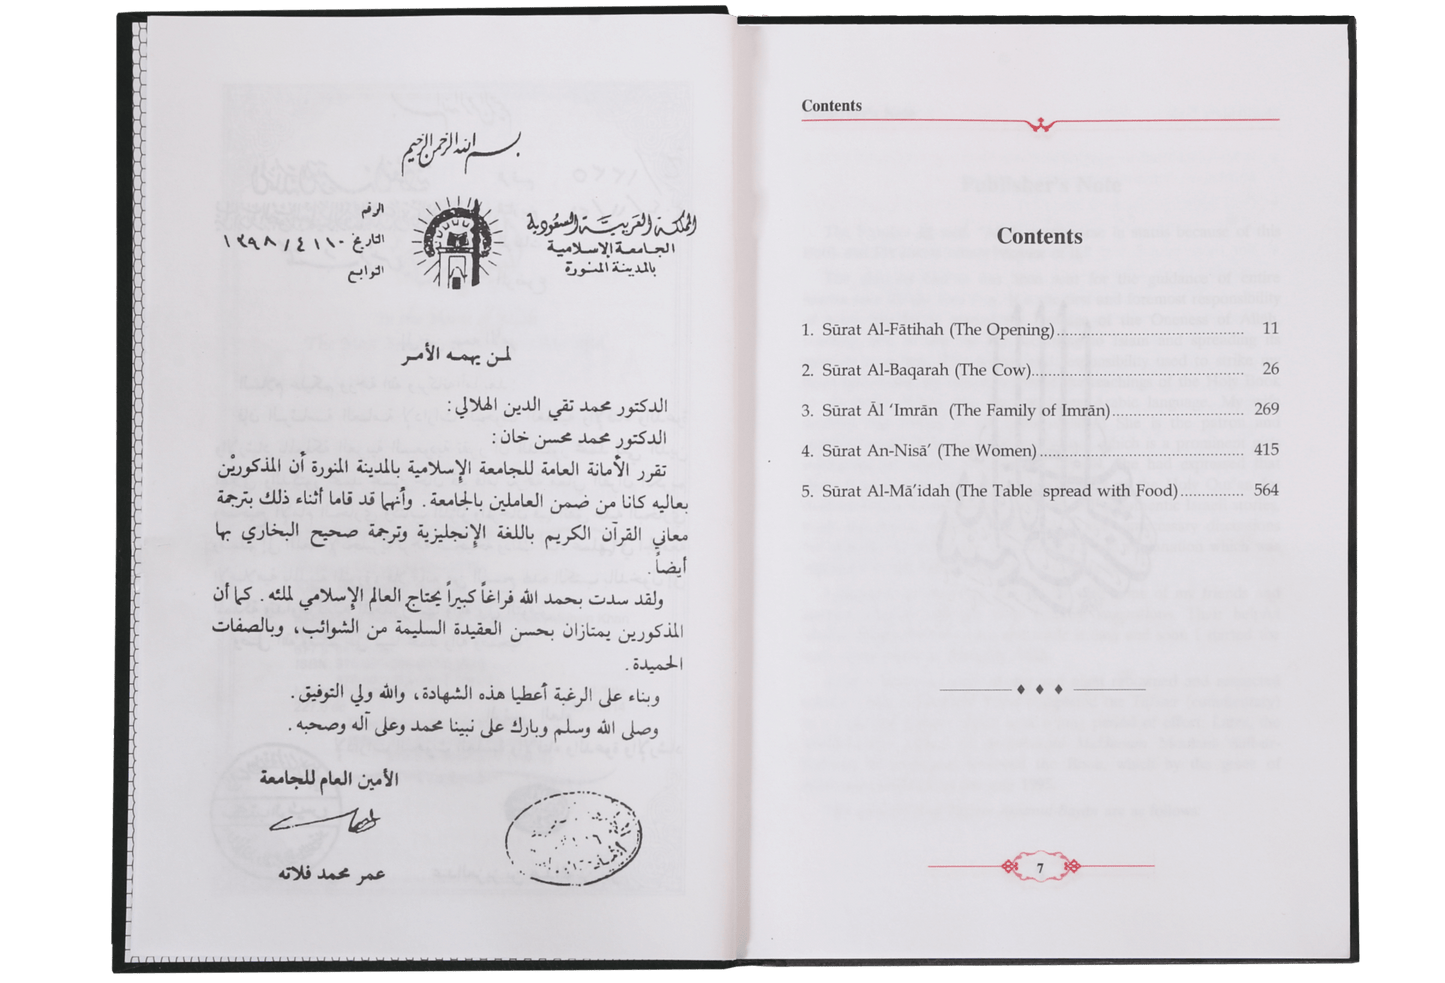 بسم الله الرحمن الرحيم
المملكة العربية السعودية
الجامعة الإسلامية
بالمدينة المنورة
الرقم
التاريخ ١٣٩٨/٤١١٠
التوابع
لمن يهمه الأمر
الدكتور محمد تقي الدين الهلالي :
الدكتور محمد محسن خان :
تقرر الأمانة العامة للجامعة الإسلامية بالمدينة المنورة أن المذكوريْن
بعاليه كانا من ضمن العاملين بالجامعة . وأنهما قد قاما أثناء ذلك بترجمة
معاني القرآن الكريم باللغة الإنجليزية وترجمة صحيح البخاري بها
أيضاً .
ولقد سدت بحمد الله فراغاً كبيراً يحتاج العالم الإسلامي لملئه . كما أن
المذكورين يمتازان بحسن العقيدة السليمة من الشوائب ، وبالصفات
الحميدة .
وبناء على الرغبة أعطيا هذه الشهادة، والله ولي التوفيق .
وصلى الله وسلم وبارك على نبينا محمد وعلى آله وصحبه .
الأمين العام للجامعة
عمر محمد فلاته
Contents
Contents
1. Sūrat Al-Fātihah (The Opening)................................ 11
2. Sūrat Al-Baqarah (The Cow)..................................... 26
3. Sūrat Āl ‘Imrān (The Family of Imrān)...................... 269
4. Sūrat An-Nisā’ (The Women).................................... 415
5. Sūrat Al-Mā’idah (The Table spread with Food).............. 564
7